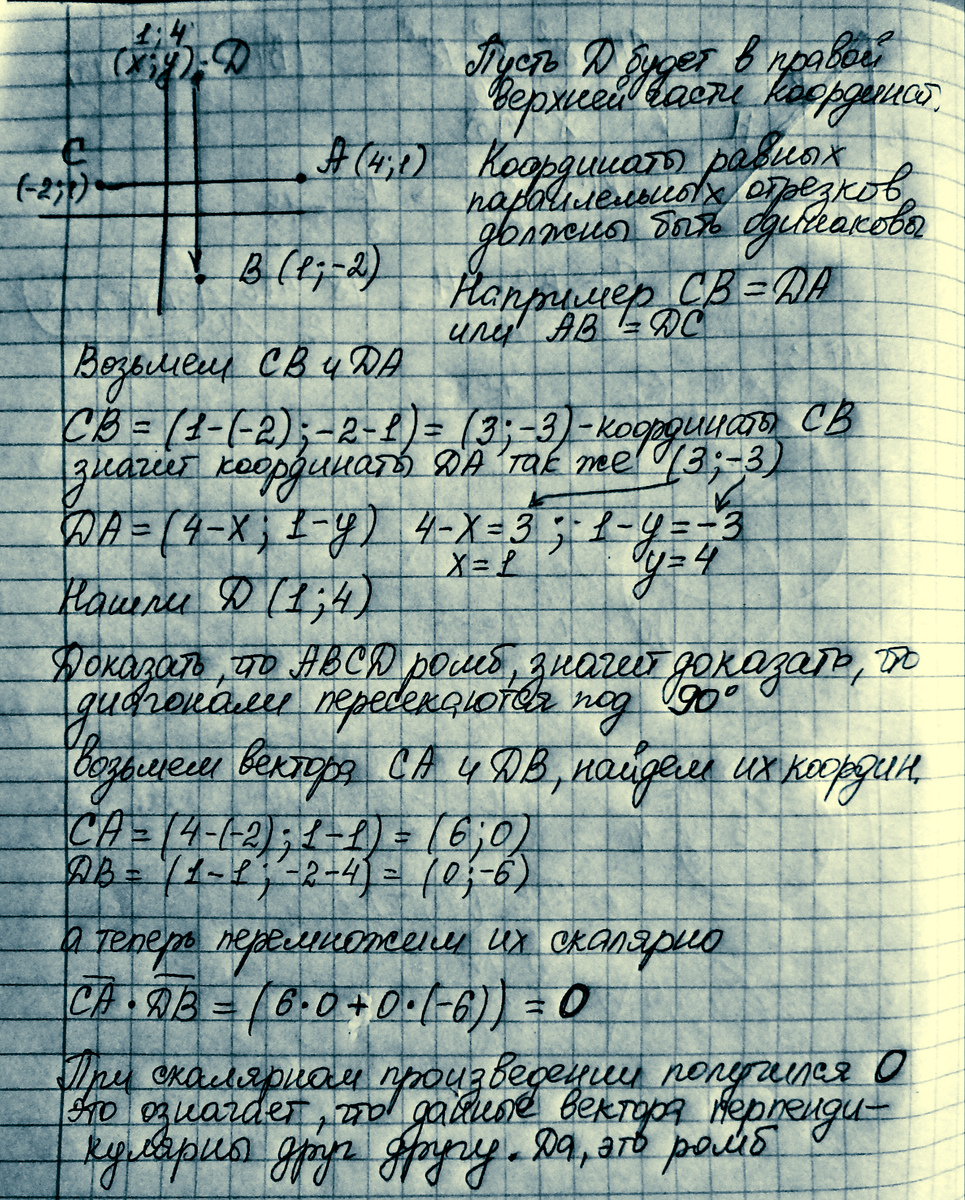 1; 4
(x; y) · D
C
(-2; 1)
A (4; 1)
B (1; -2)
Пусть D будет в правой
верхней части координат.
Координаты равных
параллельных отрезков
должны быть одинаковы
Например CB = DA
или AB = DC
Возьмем CB и DA
CB = (1-(-2); -2-1) = (3; -3) - координаты CB
значит координаты DA так же (3; -3)
DA = (4-x; 1-y) 4-x=3; 1-y=-3
x=1 y=4
Нашли D (1; 4)
Доказать, что ABCD ромб, значит доказать, что
диагонали пересекаются под 90°
возьмем вектора CA и DB, найдем их координ.
CA = (4-(-2); 1-1) = (6; 0)
DB = (1-1; -2-4) = (0; -6)
а теперь перемножим их скалярно
CA · DB = (6·0+0·(-6)) = 0
При скалярном произведении получился 0
это означает, что данные вектора перпенди-
кулярны друг другу. Да, это ромб